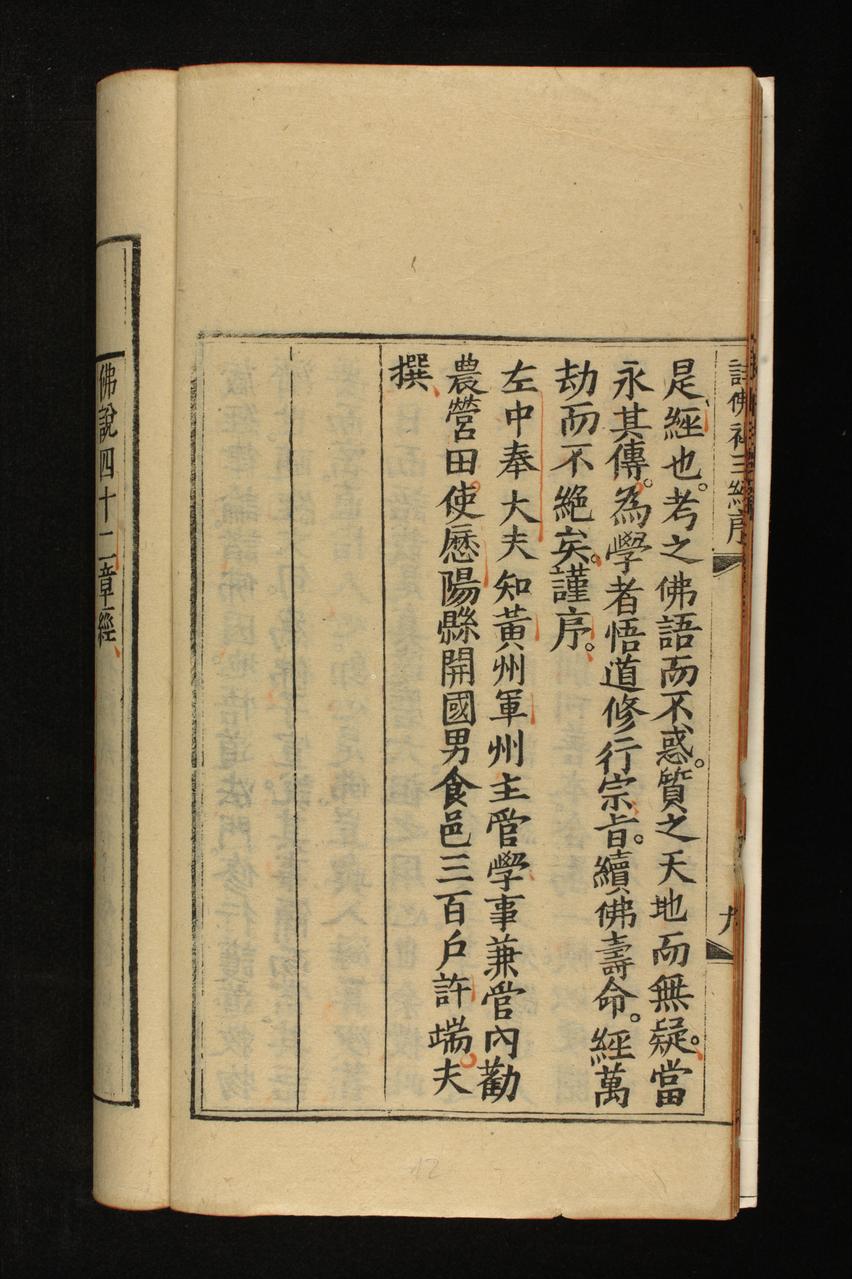 佛祖三經序
九
是經也。考之佛語而不惑。質之天地而無疑。當
永其傳。為學者悟道修行宗旨。續佛壽命。經萬
劫而不絕矣。謹序。
左中奉大夫知黃州軍州主管學事兼管內勸
農營田使歷陽縣開國男食邑三百戶許端夫
撰
佛說四十二章經
12